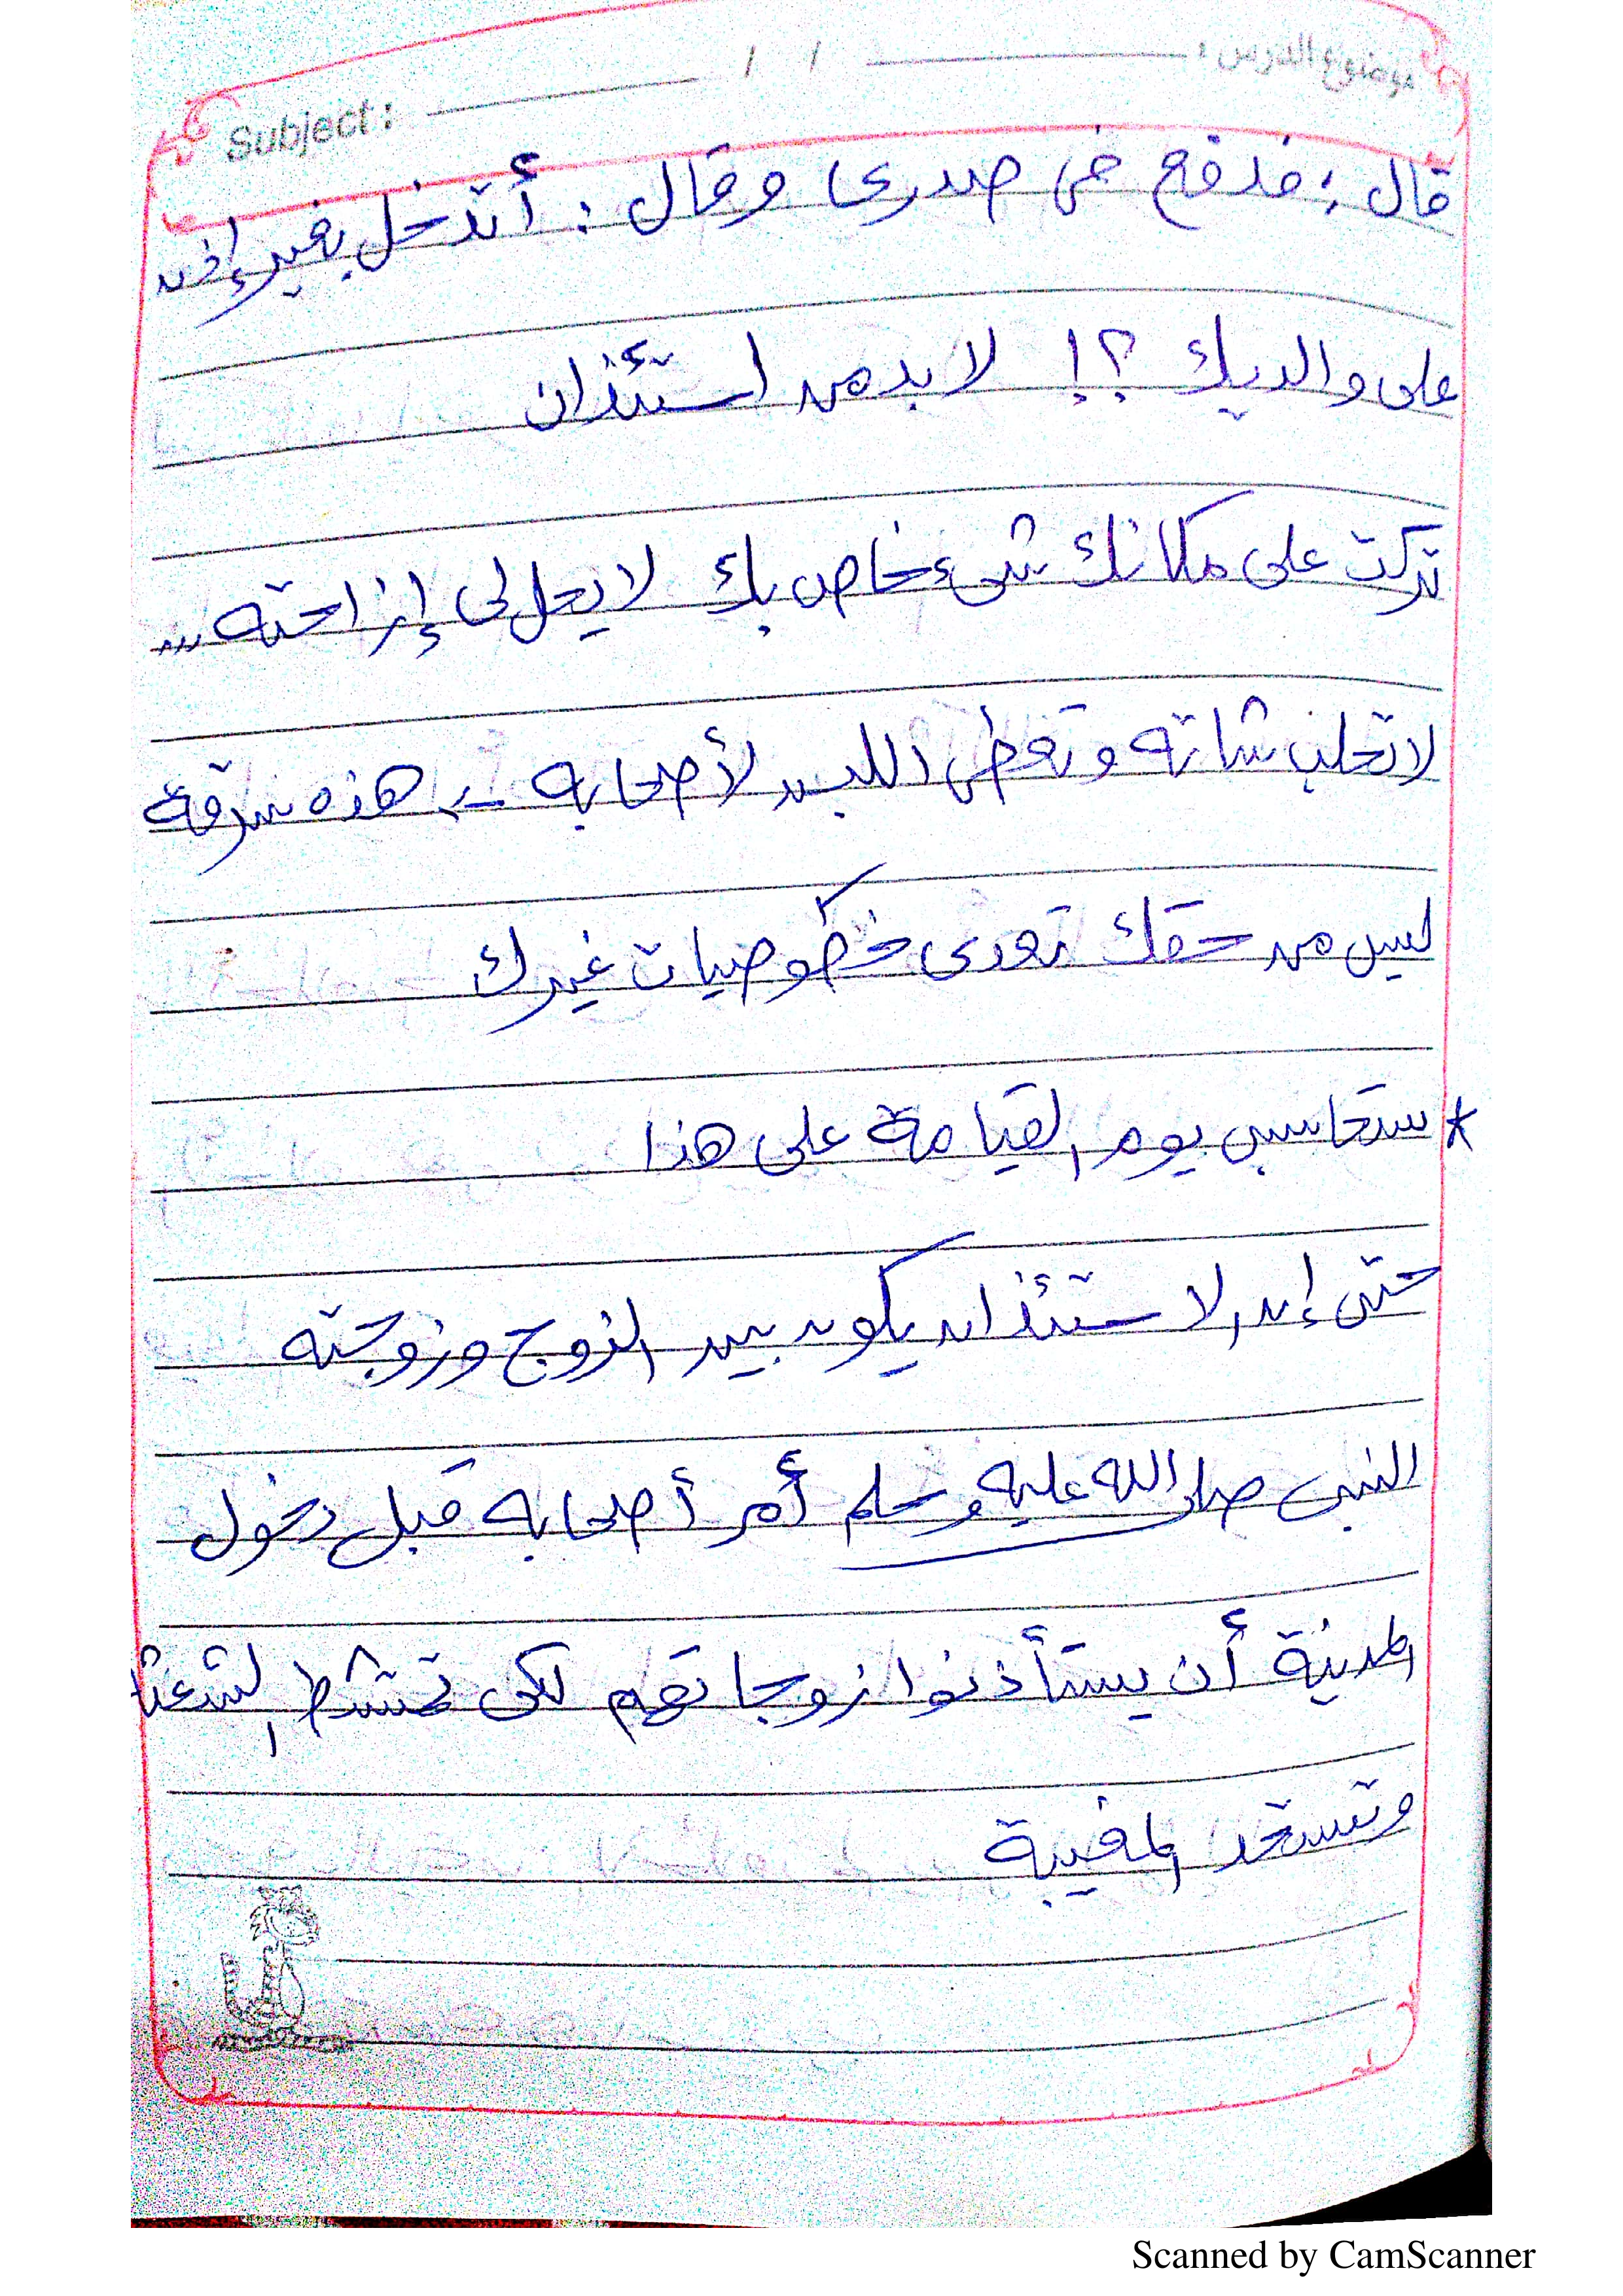 موضوع الدرس : / /
Subject :
قال : فدفع في صدرى وقال : أتدخل بغير إذن
على والديك ؟! لا بد من استئذان
تركت على مكانك شيء خاص بك لا يحل لى إزاحته ...
لا تحلب شاته وتعطى اللبن لأصحابه ← هذه سرقة
ليس من حقك تعدى خصوصيات غيرك
* ستحاسب يوم القيامة على هذا
حتى إن الاستئذان يكون بين الزوج وزوجته
النبى صلى الله عليه وسلم أمر أصحابه قبل دخول
المدينة أن يستأذنوا زوجاتهم لكى تمتشط الشعثا
وتستحد المغيبة
Scanned by CamScanner